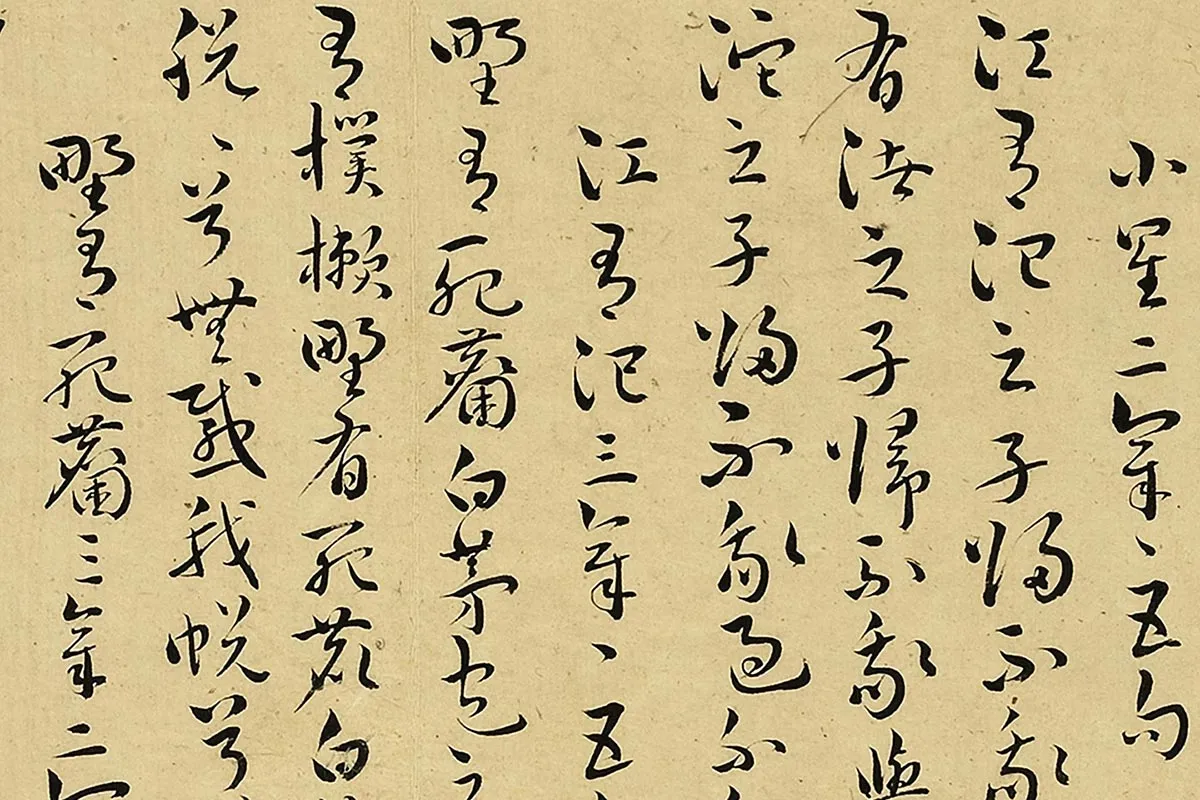 小星二章ゝ五句
江有汜之子歸不我
有渚之子歸不我與
沱之子歸不我過不
江有汜三章ゝ五
野有死麕白茅包之
有樸樕野有死鹿白
脫ゝ兮無感我帨兮
野有死麕三章二